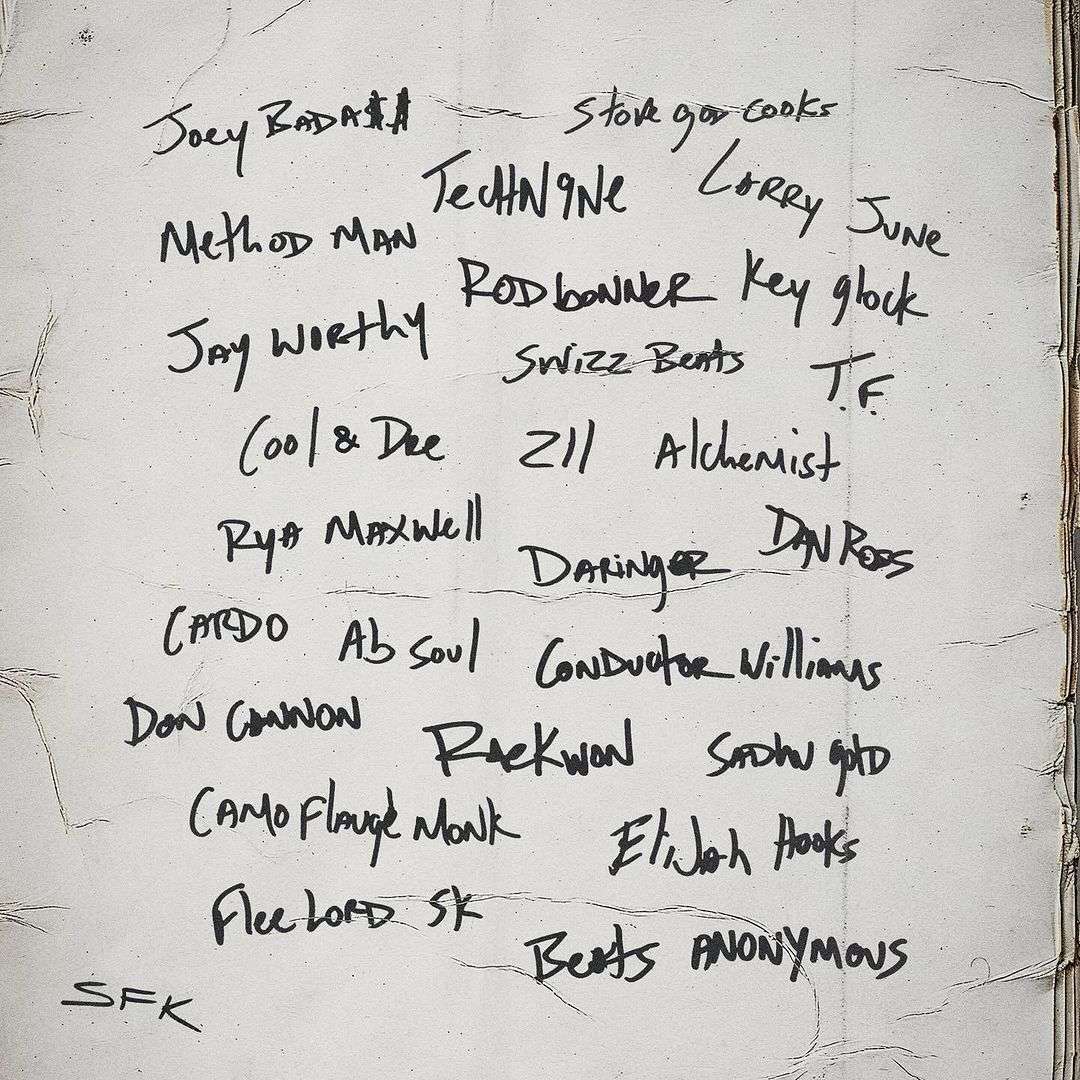 Joey BADA$$ Stove god cooks
TecHN9Ne LARRY JUNE
MethOD MAN
RODbonner Key glock
JAY WORthy
Swizz Beats T.F.
Cool & Dre 211 Alchemist
RyA MAXwell DAN ROSS
DARingeR
CARDO Ab soul CONDUctOR Williams
DON CANNON RAeKwon SADhu gOlD
CAMO Flauge MONK Elijah Hooks
Flee LORD SK
Beats ANONYMOUS
SFK